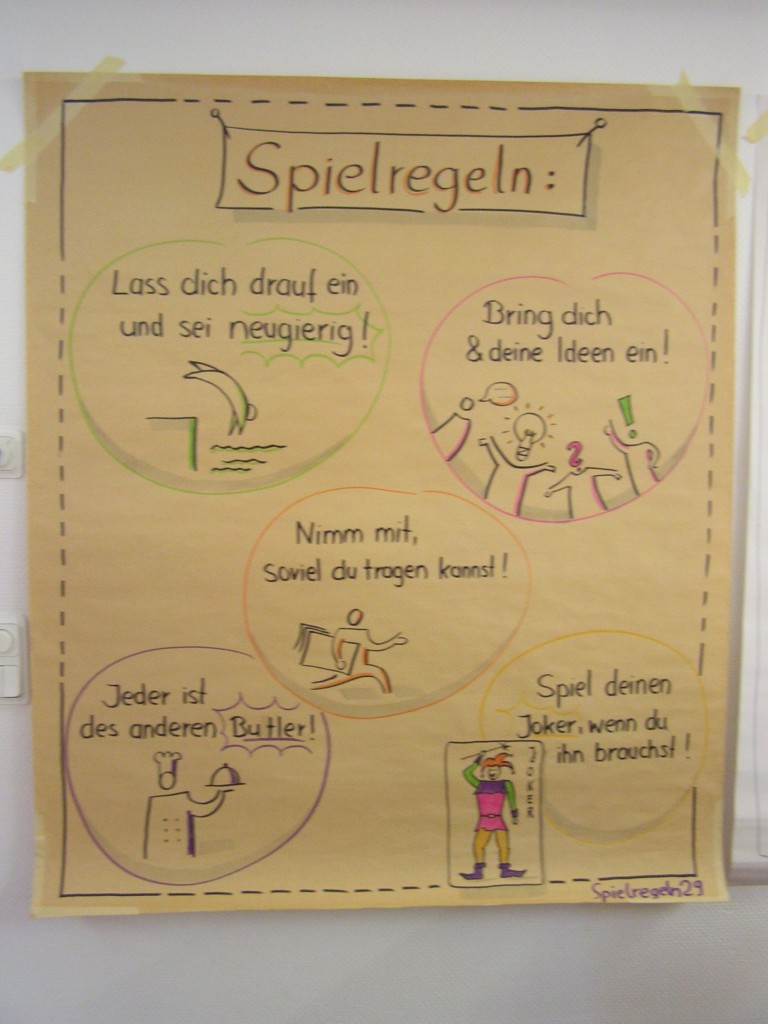 Spielregeln:
Lass dich drauf ein
und sei neugierig!
Bring dich
& deine Ideen ein!
Nimm mit,
soviel du tragen kannst!
Jeder ist
des anderen Butler!
Spiel deinen
Joker, wenn du
ihn brauchst!
JOKER
Spielregeln29